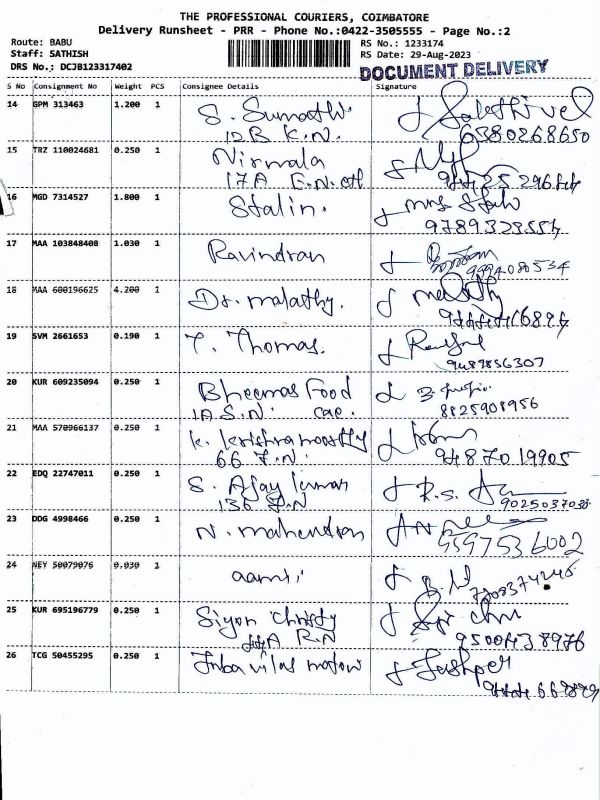 THE PROFESSIONAL COURIERS, COIMBATORE
Delivery Runsheet - PRR - Phone No.:0422-3505555 - Page No.:2
Route: BABU
Staff: SATHISH
DRS No.: DCJB123317402
RS No.: 1233174
RS Date: 29-Aug-2023
DOCUMENT DELIVERY
S No Consignment No Weight PCS Consignee Details Signature
14 GPM 313463 1.200 1 S. Sumathi Sakthivel
12B K.N. 6380268650
15 TRZ 110024681 0.250 1 Nirmala
17A E.N.
16 MGD 7314527 1.800 1 Stalin.
17 MAA 103848408 1.030 1 Ravindran
9994080534
18 MAA 600196625 4.200 1 Dr. malathy.
19 SVM 2661653 0.190 1 T. Thomas.
9489856307
20 KUR 609235094 0.250 1 Bheemas Food
1A.S.N. cae. 8825908956
21 MAA 570966137 0.250 1 K. Krishnamoorthy
66 F.N. 9487019905
22 EDQ 22747011 0.250 1 S. Ajay kumar R.S.
136 F.N
23 DDG 4998466 0.250 1 N. mahendran
9597536002
24 NEY 50079076 0.030 1
25 KUR 695196779 0.250 1 Siyon Christy
44A R.N 9500438976
26 TCG 50455295 0.250 1